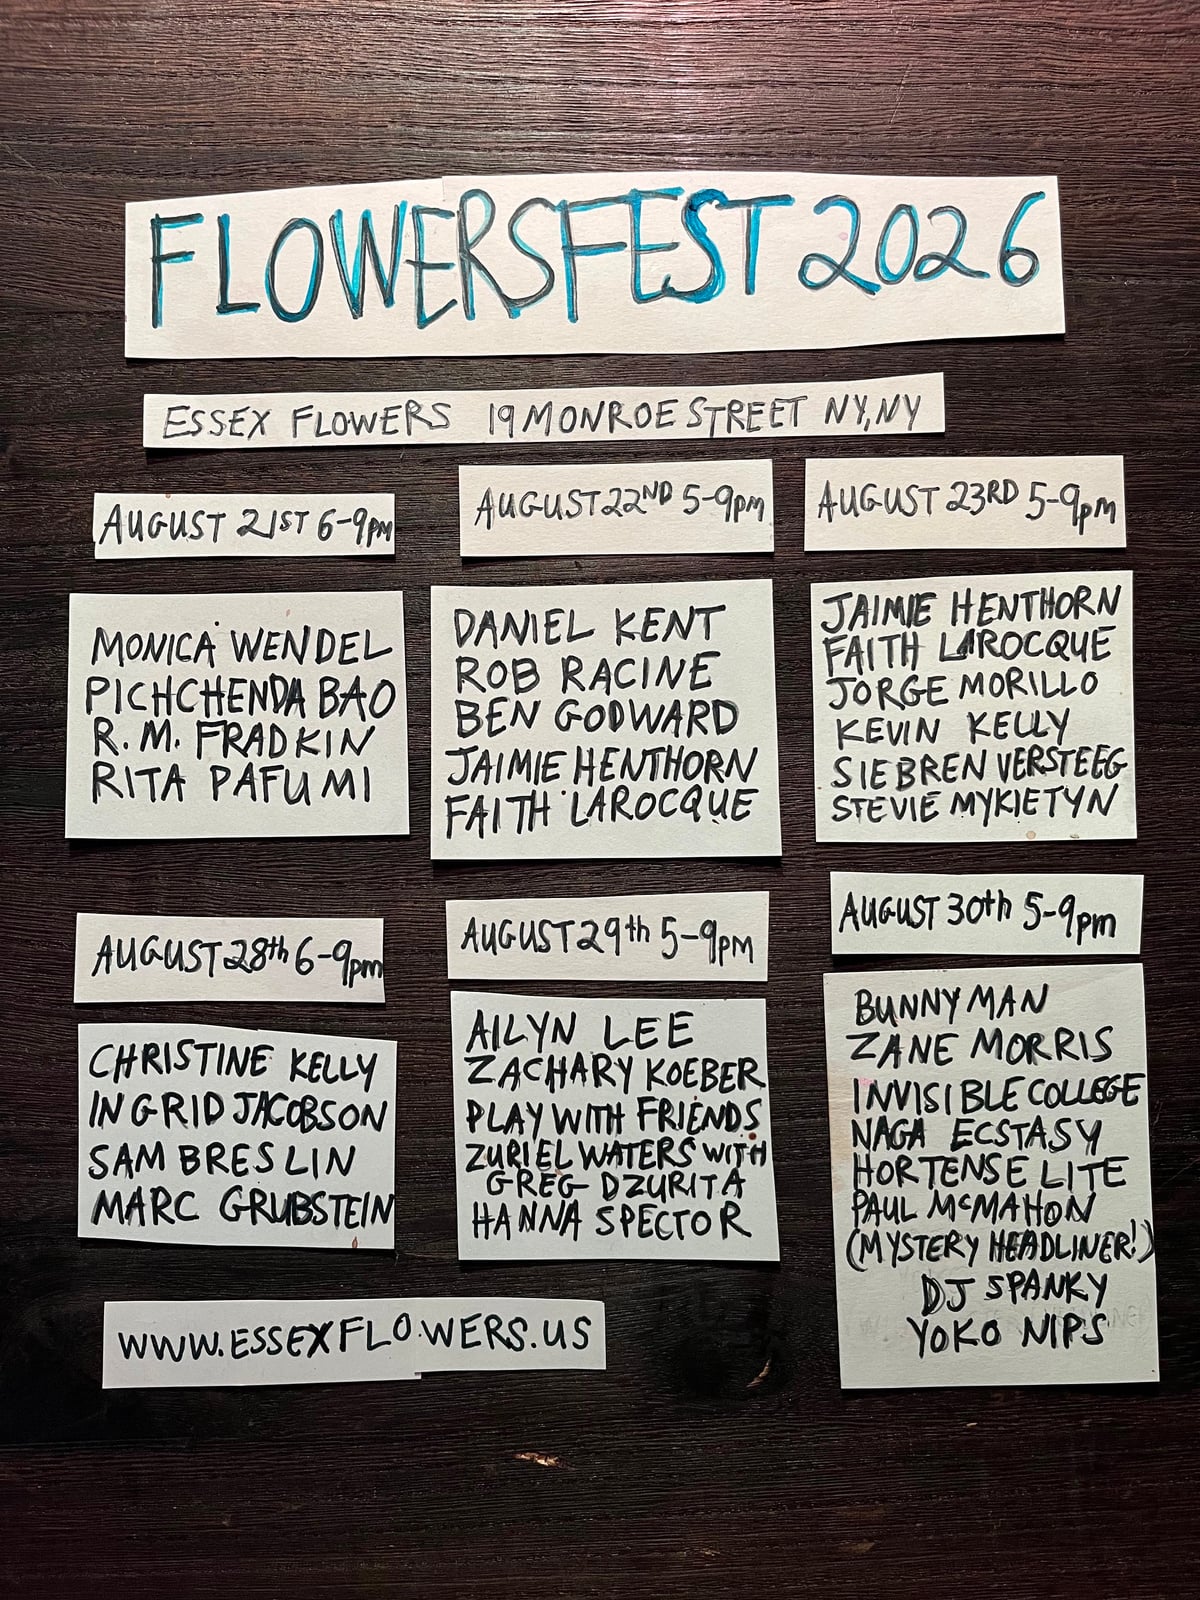 FLOWERSFEST 2026
ESSEX FLOWERS 19 MONROE STREET NY, NY
AUGUST 21ST 6-9pm
MONICA WENDEL
PICHCHENDA BAO
R. M. FRADKIN
RITA PAFUMI
AUGUST 22ND 5-9pm
DANIEL KENT
ROB RACINE
BEN GODWARD
JAIMIE HENTHORN
FAITH LAROCQUE
AUGUST 23RD 5-9pm
JAIMIE HENTHORN
FAITH LAROCQUE
JORGE MORILLO
KEVIN KELLY
SIEBREN VERSTEEG
STEVIE MYKIETYN
AUGUST 28th 6-9pm
CHRISTINE KELLY
INGRID JACOBSON
SAM BRESLIN
MARC GRUBSTEIN
AUGUST 29th 5-9pm
AILYN LEE
ZACHARY KOEBER
PLAY WITH FRIENDS
ZURIEL WATERS WITH
GREG DZURITA
HANNA SPECTOR
AUGUST 30th 5-9pm
BUNNY MAN
ZANE MORRIS
INVISIBLE COLLEGE
NAGA ECSTASY
HORTENSE LITE
PAUL McMAHON
(MYSTERY HEADLINER!)
DJ SPANKY
YOKO NIPS
WWW.ESSEXFLOWERS.US